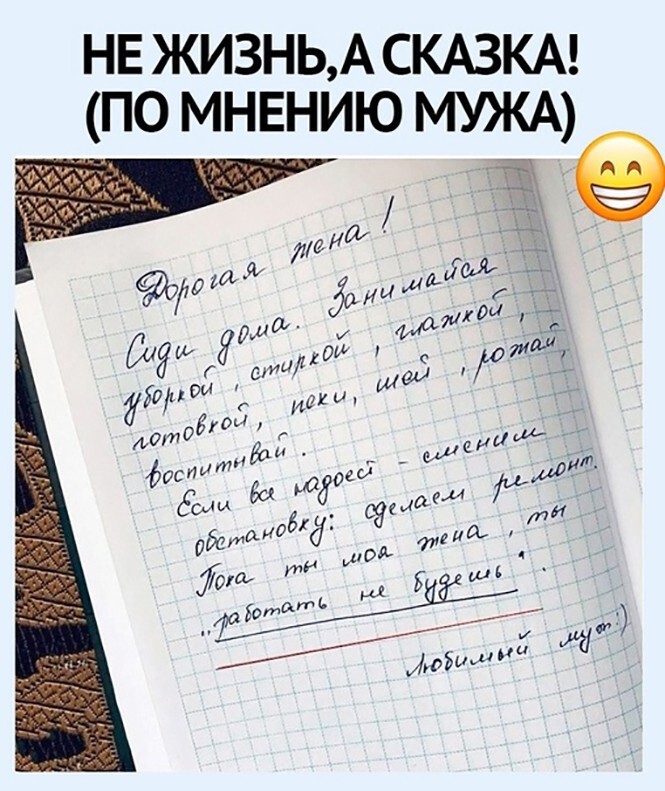 НЕ ЖИЗНЬ,А СКАЗКА!
(ПО МНЕНИЮ МУЖА)
Дорогая жена!
Сиди дома. Занимайся
уборкой, стиркой, глажкой,
готовкой, пеки, шей, рожай,
воспитывай.
Если все надоест - сменим
обстановку: сделаем ремонт.
Пока ты моя жена, ты
„работать не будешь".
Любимый муж:)